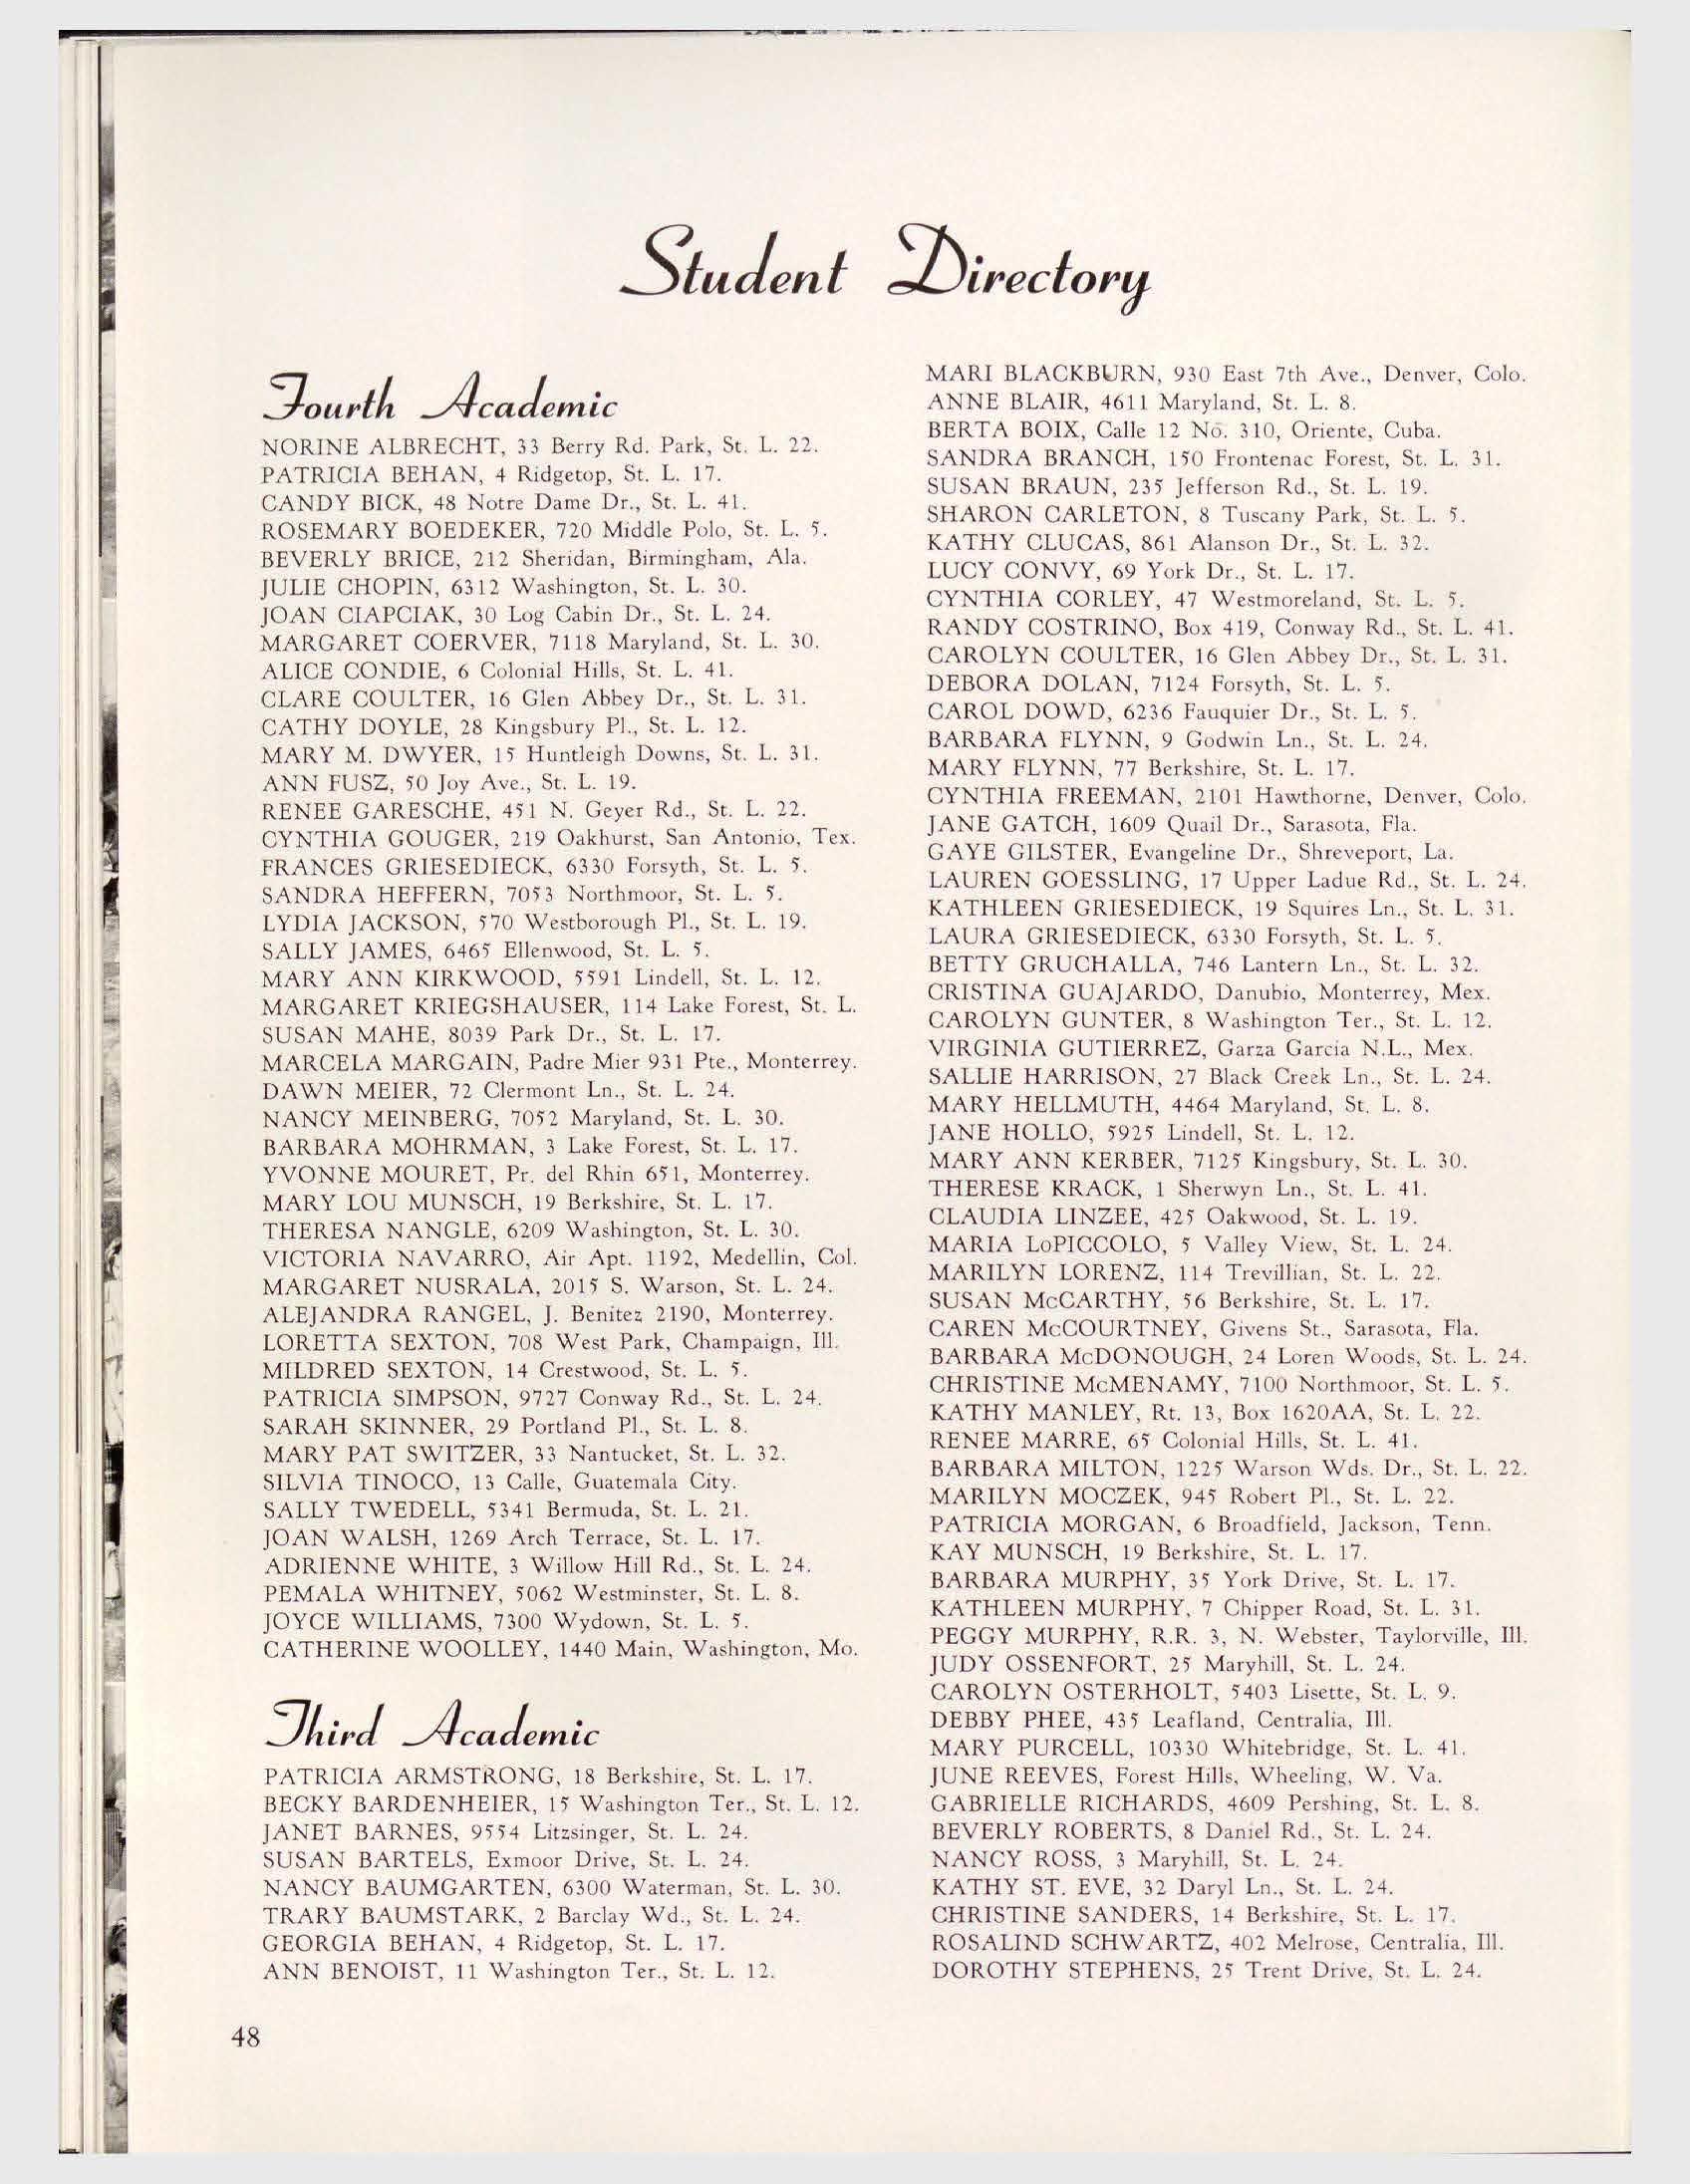 Student Directory
Fourth Academic
NORINE ALBRECHT, 33 Berry Rd. Park, St. L. 22.
PATRICIA BEHAN, 4 Ridgetop, St. L. 17.
CANDY BICK, 48 Notre Dame Dr., St. L. 41.
ROSEMARY BOEDEKER, 720 Middle Polo, St. L. 5.
BEVERLY BRICE, 212 Sheridan, Birmingham, Ala.
JULIE CHOPIN, 6312 Washington, St. L. 30.
JOAN CIAPCIAK, 30 Log Cabin Dr., St. L. 24.
MARGARET COERVER, 7118 Maryland, St. L. 30.
ALICE CONDIE, 6 Colonial Hills, St. L. 41.
CLARE COULTER, 16 Glen Abbey Dr., St. L. 31.
CATHY DOYLE, 28 Kingsbury Pl., St. L. 12.
MARY M. DWYER, 15 Huntleigh Downs, St. L. 31.
ANN FUSZ, 50 Joy Ave., St. L. 19.
RENEE GARESCHE, 451 N. Geyer Rd., St. L. 22.
CYNTHIA GOUGER, 219 Oakhurst, San Antonio, Tex.
FRANCES GRIESEDIECK, 6330 Forsyth, St. L. 5.
SANDRA HEFFERN, 7053 Northmoor, St. L. 5.
LYDIA JACKSON, 570 Westborough Pl., St. L. 19.
SALLY JAMES, 6465 Ellenwood, St. L. 5.
MARY ANN KIRKWOOD, 5591 Lindell, St. L. 12.
MARGARET KRIEGSHAUSER, 114 Lake Forest, St. L.
SUSAN MAHE, 8039 Park Dr., St. L. 17.
MARCELA MARGAIN, Padre Mier 931 Pte., Monterrey.
DAWN MEIER, 72 Clermont Ln., St. L. 24.
NANCY MEINBERG, 7052 Maryland, St. L. 30.
BARBARA MOHRMAN, 3 Lake Forest, St. L. 17.
YVONNE MOURET, Pr. del Rhin 651, Monterrey.
MARY LOU MUNSCH, 19 Berkshire, St. L. 17.
THERESA NANGLE, 6209 Washington, St. L. 30.
VICTORIA NAVARRO, Air Apt. 1192, Medellin, Col.
MARGARET NUSRALA, 2015 S. Warson, St. L. 24.
ALEJANDRA RANGEL, J. Benitez 2190, Monterrey.
LORETTA SEXTON, 708 West Park, Champaign, Ill.
MILDRED SEXTON, 14 Crestwood, St. L. 5.
PATRICIA SIMPSON, 9727 Conway Rd., St. L. 24.
SARAH SKINNER, 29 Portland Pl., St. L. 8.
MARY PAT SWITZER, 33 Nantucket, St. L. 32.
SILVIA TINOCO, 13 Calle, Guatemala City.
SALLY TWEDELL, 5341 Bermuda, St. L. 21.
JOAN WALSH, 1269 Arch Terrace, St. L. 17.
ADRIENNE WHITE, 3 Willow Hill Rd., St. L. 24.
PEMALA WHITNEY, 5062 Westminster, St. L. 8.
JOYCE WILLIAMS, 7300 Wydown, St. L. 5.
CATHERINE WOOLLEY, 1440 Main, Washington, Mo.
Third Academic
PATRICIA ARMSTRONG, 18 Berkshire, St. L. 17.
BECKY BARDENHEIER, 15 Washington Ter., St. L. 12.
JANET BARNES, 9554 Litzsinger, St. L. 24.
SUSAN BARTELS, Exmoor Drive, St. L. 24.
NANCY BAUMGARTEN, 6300 Waterman, St. L. 30.
TRARY BAUMSTARK, 2 Barclay Wd., St. L. 24.
GEORGIA BEHAN, 4 Ridgetop, St. L. 17.
ANN BENOIST, 11 Washington Ter., St. L. 12.
MARI BLACKBURN, 930 East 7th Ave., Denver, Colo.
ANNE BLAIR, 4611 Maryland, St. L. 8.
BERTA BOIX, Calle 12 No. 310, Oriente, Cuba.
SANDRA BRANCH, 150 Frontenac Forest, St. L. 31.
SUSAN BRAUN, 235 Jefferson Rd., St. L. 19.
SHARON CARLETON, 8 Tuscany Park, St. L. 5.
KATHY CLUCAS, 861 Alanson Dr., St. L. 32.
LUCY CONVY, 69 York Dr., St. L. 17.
CYNTHIA CORLEY, 47 Westmoreland, St. L. 5.
RANDY COSTRINO, Box 419, Conway Rd., St. L. 41.
CAROLYN COULTER, 16 Glen Abbey Dr., St. L. 31.
DEBORA DOLAN, 7124 Forsyth, St. L. 5.
CAROL DOWD, 6236 Fauquier Dr., St. L. 5.
BARBARA FLYNN, 9 Godwin Ln., St. L. 24.
MARY FLYNN, 77 Berkshire, St. L. 17.
CYNTHIA FREEMAN, 2101 Hawthorne, Denver, Colo.
JANE GATCH, 1609 Quail Dr., Sarasota, Fla.
GAYE GILSTER, Evangeline Dr., Shreveport, La.
LAUREN GOESSLING, 17 Upper Ladue Rd., St. L. 24.
KATHLEEN GRIESEDIECK, 19 Squires Ln., St. L. 31.
LAURA GRIESEDIECK, 6330 Forsyth, St. L. 5.
BETTY GRUCHALLA, 746 Lantern Ln., St. L. 32.
CRISTINA GUAJARDO, Danubio, Monterrey, Mex.
CAROLYN GUNTER, 8 Washington Ter., St. L. 12.
VIRGINIA GUTIERREZ, Garza Garcia N.L., Mex.
SALLIE HARRISON, 27 Black Creek Ln., St. L. 24.
MARY HELLMUTH, 4464 Maryland, St. L. 8.
JANE HOLLO, 5925 Lindell, St. L. 12.
MARY ANN KERBER, 7125 Kingsbury, St. L. 30.
THERESE KRACK, 1 Sherwyn Ln., St. L. 41.
CLAUDIA LINZEE, 425 Oakwood, St. L. 19.
MARIA LoPICCOLO, 5 Valley View, St. L. 24.
MARILYN LORENZ, 114 Trevillian, St. L. 22.
SUSAN McCARTHY, 56 Berkshire, St. L. 17.
CAREN McCOURTNEY, Givens St., Sarasota, Fla.
BARBARA McDONOUGH, 24 Loren Woods, St. L. 24.
CHRISTINE McMENAMY, 7100 Northmoor, St. L. 5.
KATHY MANLEY, Rt. 13, Box 1620AA, St. L. 22.
RENEE MARRE, 65 Colonial Hills, St. L. 41.
BARBARA MILTON, 1225 Warson Wds. Dr., St. L. 22.
MARILYN MOCZEK, 945 Robert Pl., St. L. 22.
PATRICIA MORGAN, 6 Broadfield, Jackson, Tenn.
KAY MUNSCH, 19 Berkshire, St. L. 17.
BARBARA MURPHY, 35 York Drive, St. L. 17.
KATHLEEN MURPHY, 7 Chipper Road, St. L. 31.
PEGGY MURPHY, R.R. 3, N. Webster, Taylorville, Ill.
JUDY OSSENFORT, 25 Maryhill, St. L. 24.
CAROLYN OSTERHOLT, 5403 Lisette, St. L. 9.
DEBBY PHEE, 435 Leafland, Centralia, Ill.
MARY PURCELL, 10330 Whitebridge, St. L. 41.
JUNE REEVES, Forest Hills, Wheeling, W. Va.
GABRIELLE RICHARDS, 4609 Pershing, St. L. 8.
BEVERLY ROBERTS, 8 Daniel Rd., St. L. 24.
NANCY ROSS, 3 Maryhill, St. L. 24.
KATHY ST. EVE, 32 Daryl Ln., St. L. 24.
CHRISTINE SANDERS, 14 Berkshire, St. L. 17.
ROSALIND SCHWARTZ, 402 Melrose, Centralia, Ill.
DOROTHY STEPHENS, 25 Trent Drive, St. L. 24.
48